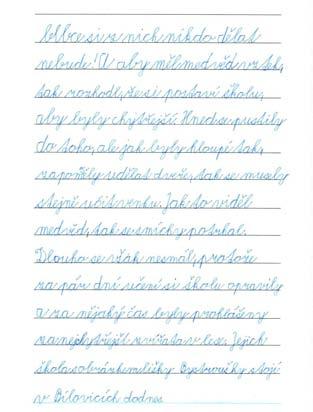 blbce si z nich nikdo dělat
nebude! A aby měl medvěd vztek,
tak rozhodl, že si postaví školu,
aby byly chytřejší. Hned se pustily
do toho, ale jak byly hloupí tak,
zapoměly udělat dveře, tak se musely
stejně učit venku. Jak to viděl
medvěd, tak se smíchy potrhal.
Dlouho se však nesmál, protože
za pár dní učení si školu opravily
a za nějaký čas byly prohlášeny
za nejchytřejší zvířata v lese. Jejich
škola s obrázkem lišky Bystroušky stojí
v Bílovicích dodnes